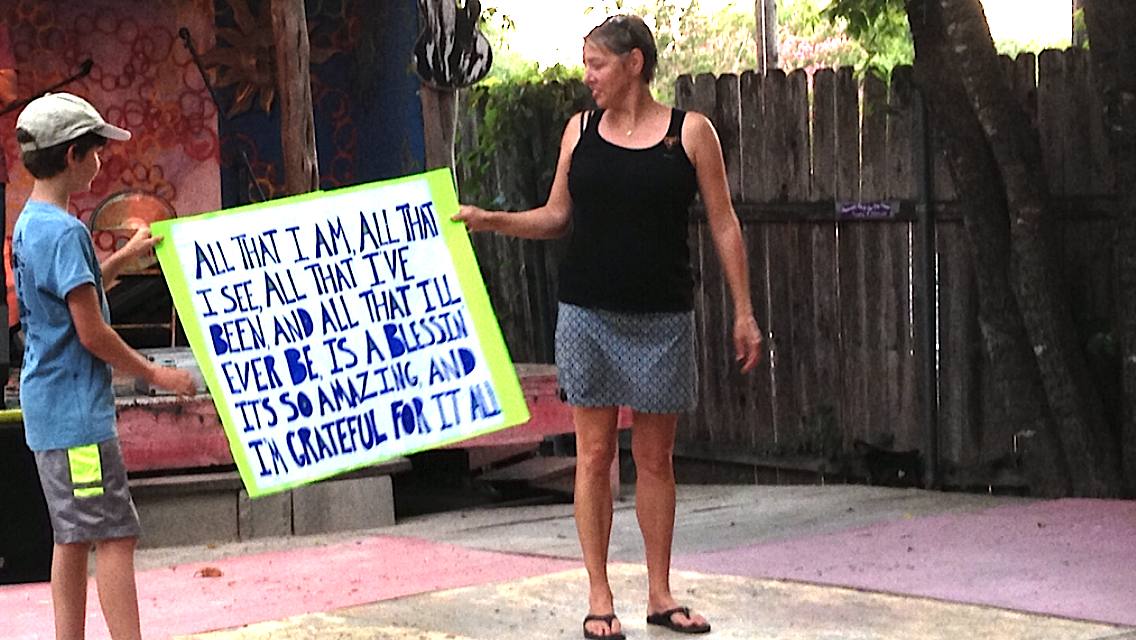 ALL THAT I AM, ALL THAT
I SEE, ALL THAT I'VE
BEEN, AND ALL THAT ILL
EVER BE, IS A BLESSIN
IT'S SO AMAZING, AND
I'M GRATEFUL FOR IT ALL